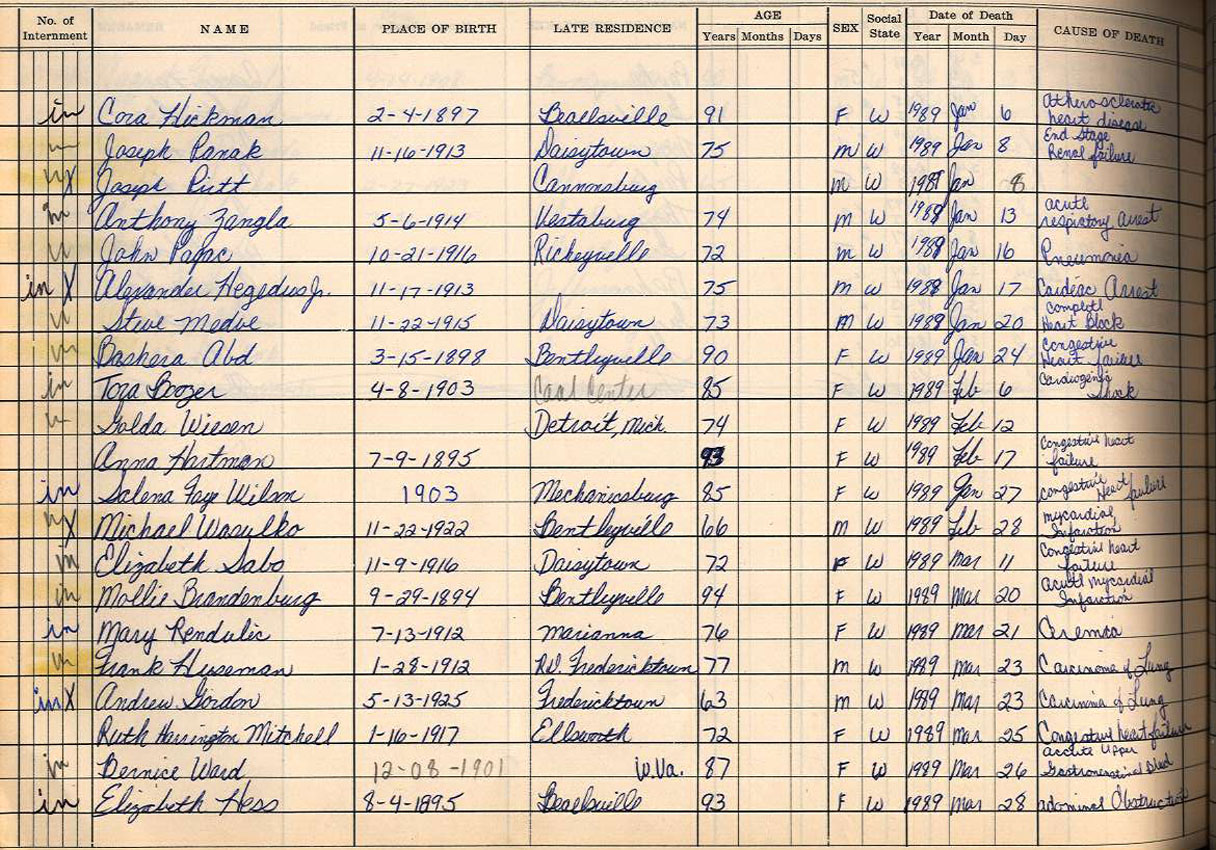 No. of Internment NAME PLACE OF BIRTH LATE RESIDENCE AGE Years Months Days SEX Social State Date of Death Year Month Day CAUSE OF DEATH
in Cora Hickman 2-4-1897 Beallsville 91 F W 1989 Jan 6 Atherosclerotic heart disease
in Joseph Panak 11-16-1913 Daisytown 75 M W 1989 Jan 8 End Stage Renal failure
in X Joseph Piett Cannonsburg M W 1989 Jan 8
in Anthony Zangla 5-6-1914 Vestaburg 74 M W 1989 Jan 13 acute respiratory Arrest
in John Papac 10-21-1916 Richeyville 72 M W 1989 Jan 16 Pneumonia
in X Alexander Hegedus Jr. 11-17-1913 75 M W 1989 Jan 17 Cardiac Arrest
in Steve Medve 11-22-1915 Daisytown 73 M W 1989 Jan 20 Complete Heart Block
in Bashera Abd 3-15-1898 Bentleyville 90 F W 1989 Jan 24 Congestive Heart failure
in Tora Boozer 4-8-1903 Coal Center 85 F W 1989 Feb 6 Cardiogenic Shock
in Golda Wiesen Detroit, Mich. 74 F W 1989 Feb 12
Anna Hartman 7-9-1895 93 F W 1989 Feb 17 Congestive heart failure
in Salena Faye Wilson 1903 Mechanicsburg 85 F W 1989 Jan 27 congestive Heart failure
in X Michael Wasylko 11-22-1922 Bentleyville 66 M W 1989 Feb 28 myocardial Infarction
in Elizabeth Sabo 11-9-1916 Daisytown 72 F W 1989 Mar 11 Congestive heart failure
in Mollie Brandenburg 9-29-1894 Bentleyville 94 F W 1989 Mar 20 Acute myocardial Infarction
in Mary Rendulic 7-13-1912 Marianna 76 F W 1989 Mar 21
in Frank Huseman 1-28-1912 Rd Fredericktown 77 M W 1989 Mar 23 Carcinoma of Lung
in X Andrew Gordon 5-13-1925 Fredericktown 63 M W 1989 Mar 23 Carcinoma of Lung
Ruth Harrington Mitchell 1-16-1917 Ellsworth 72 F W 1989 Mar 25 Congestive heart failure
in Bernice Ward 12-08-1901 W.Va. 87 F W 1989 Mar 26 accute Upper
in Elizabeth Hess 8-4-1895 Beallsville 93 F W 1989 Mar 28 adominal Obstruction